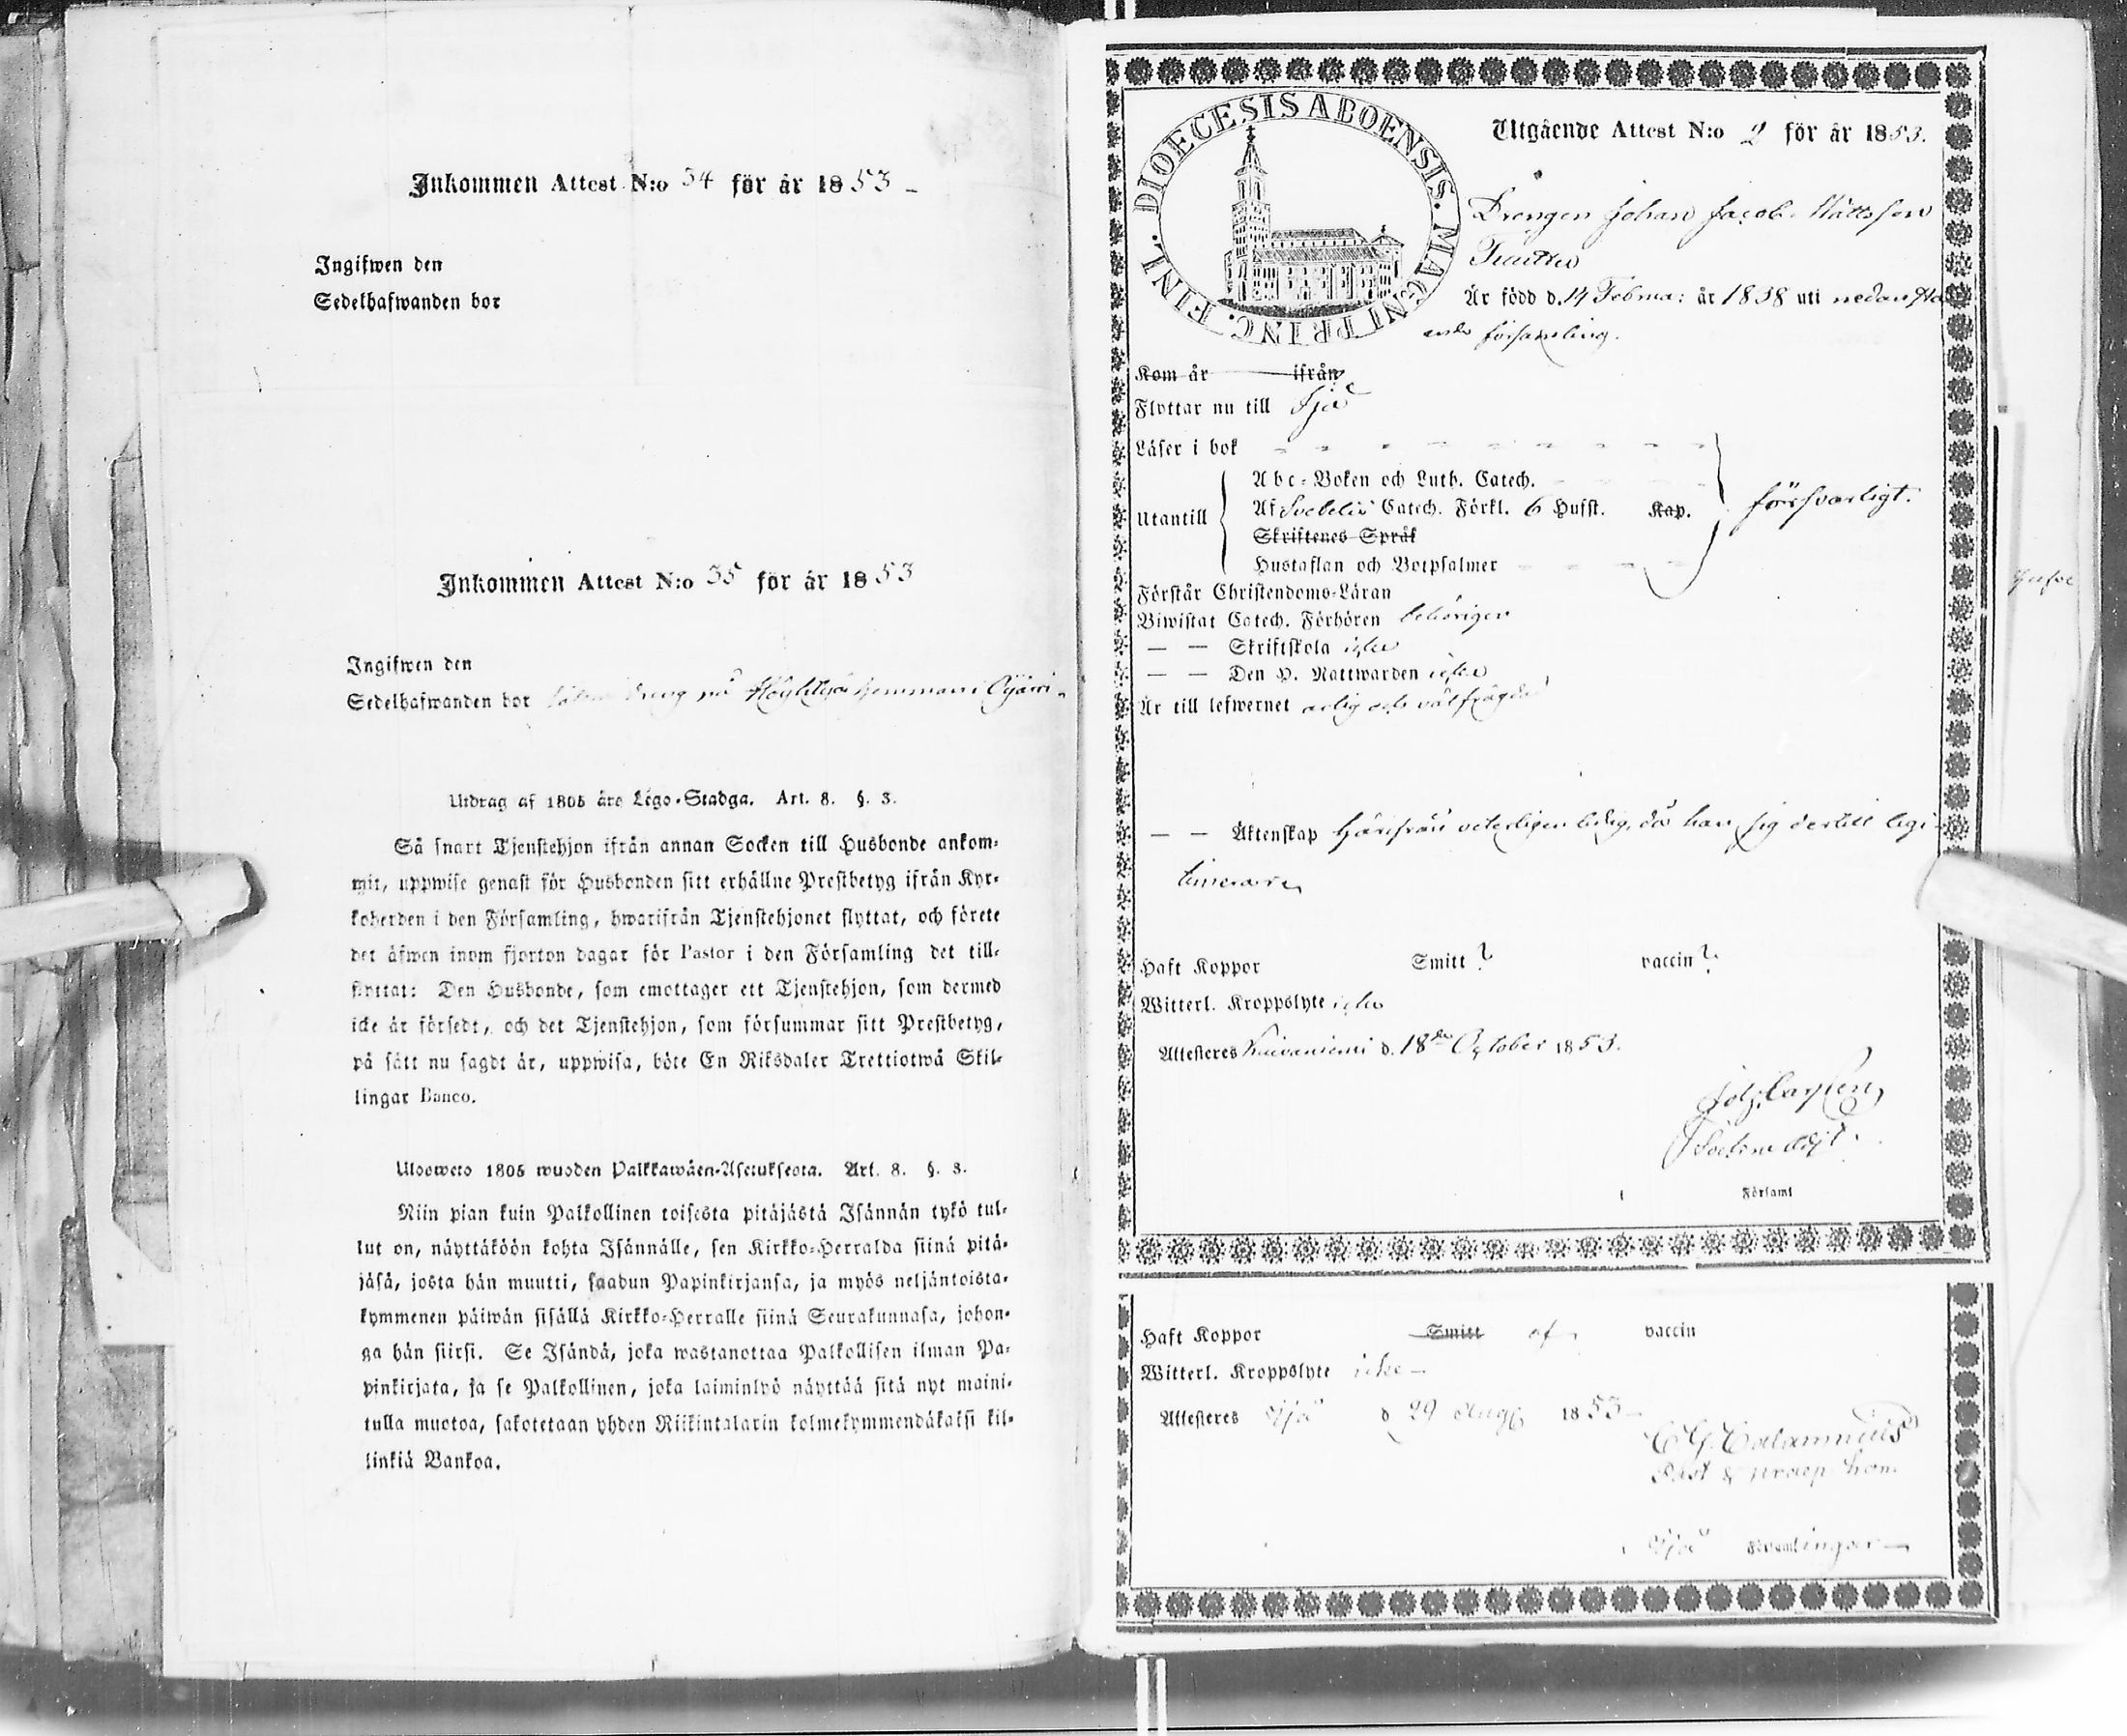 Inkommen Attest N:o 34 för år 1853 -
Ingifwen den
Sedelhafwanden bor
Inkommen Attest N:o 35 för år 1853
Ingifwen den
Sedelhafwanden bor på
Utdrag af 1805 års Lego-Stadga. Art. 8. §. 3.
Så snart Tjenstehjon ifrån annan Socken till Husbonde ankom-
mit, uppwise genast för Husbonden sitt erhållne Prestbetyg ifrån Kyr-
koherden i den Församling, hwarifrån Tjenstehjonet flyttat, och förete
det äfwen inom fjorton dagar för Pastor i den Församling det till-
flyttat: Den Husbonde, som emottager ett Tjenstehjon, som dermed
icke är försedt, och det Tjenstehjon, som försummar sitt Prestbetyg,
på sätt nu sagdt är, uppwisa, böte En Riksdaler Trettiotwå Skil-
lingar Banco.
Uloswето 1805 wuoden Palkkawäen-Asetuksesta. Art. 8. §. 3.
Niin pian kuin Palkollinen toisesta pitäjästä Isännän tykö tul-
lut on, näyttäköön kohta Isännälle, sen Kirkko-Herralda siinä pitä-
jäsä, josta hän muutti, saadun Papinkirjansa, ja myös neljäntoista-
kymmenen päiwän sisällä Kirkko-Herralle siinä Seurakunnasa, johon-
ga hän siirsi. Se Isändä, joka wastanottaa Palkollisen ilman Pa-
pinkirjata, ja se Palkollinen, joka laiminlyö näyttää sitä nyt maini-
tulla muotoa, sakotetaan yhden Riikintalarin kolmekymmendäkaksi kil-
linkiä Bankoa.
DIOECESIS ABOENSIS. MAGNI PRINC. FINL.
Utgående Attest N:o 2 för år 1853.
Drengen Johan Jacob Mattsson
Är född d. 14 Februa: år 1838 uti nedanstå
ende församling.
Kom år ifrån
Flyttar nu till Ijo
Läser i bok
Abc-Boken och Luth. Catech.
Utantill Af Svebelii Catech. Förkl. 6 Hufst. Kap. försvarligt.
Skriftenes Språk
Hustaflan och Botpsalmer
Förstår Christendoms-Läran
Biwistat Catech. Förhören behörigen
— — Skriftskola icke
— — Den H. Nattwarden icke
Är till lefwernet ärlig och välfrägdad
— — Äktenskap Härifrån veterligen ledig, då han sig dertill legi-
timerare
Haft Koppor Smitt? vaccin?
Witterl. Kroppslyte icke
Attesteres Kuivaniemi d. 18de October 1853.
Församl
Haft Koppor Smitt af vaccin
Witterl. Kroppslyte icke -
Attesteres Ijo d 29 Aug 1853 -
C G Calamnius
Past & praep hon.
Ijo Församlingar —